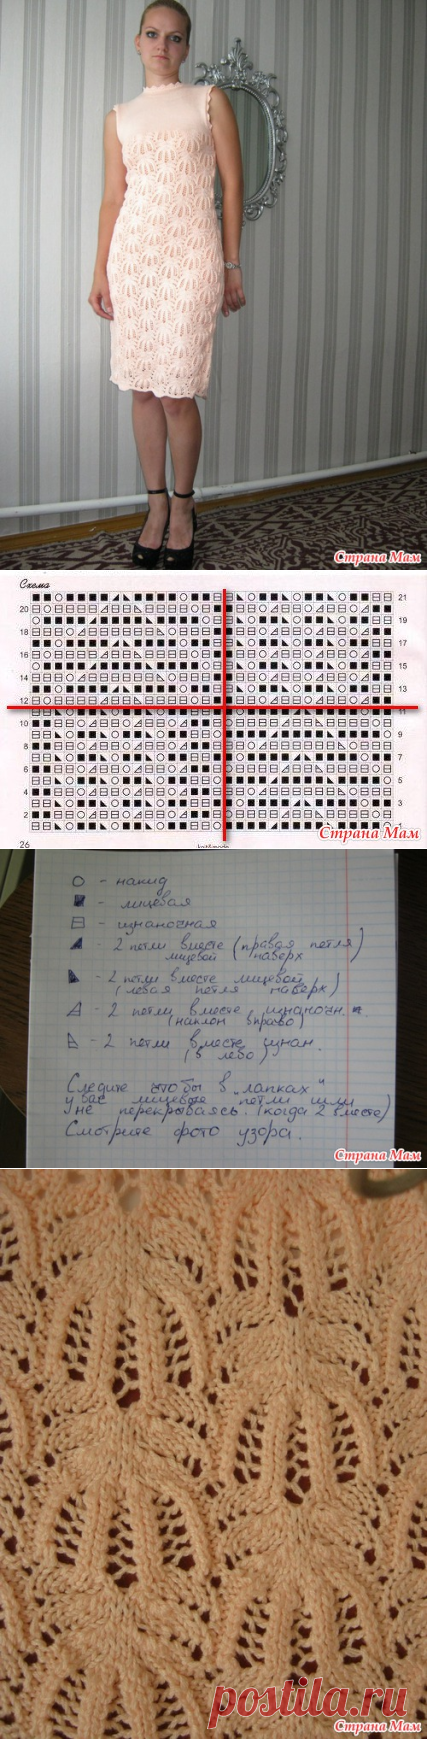 Страна Мам
Схема
20
18
16
14
12
10
8
6
4
2
21
19
17
15
13
11
9
7
5
3
1
26
Страна Мам
- накид
- лицевая
- изнаночная
- 2 петли вместе (правая петля)
лицевой наверх
- 2 петли вместе лицевой
(левая петля наверх)
- 2 петли вместе изнаночн.
(наклон вправо)
- 2 петли вместе изнан.
(в лево)
Следите чтобы в "лапках"
у вас лицевые петли шли
не перекрываясь. (когда 2 вместе)
Смотрите фото узора.
Страна Мам
postila.ru
Страна Мам